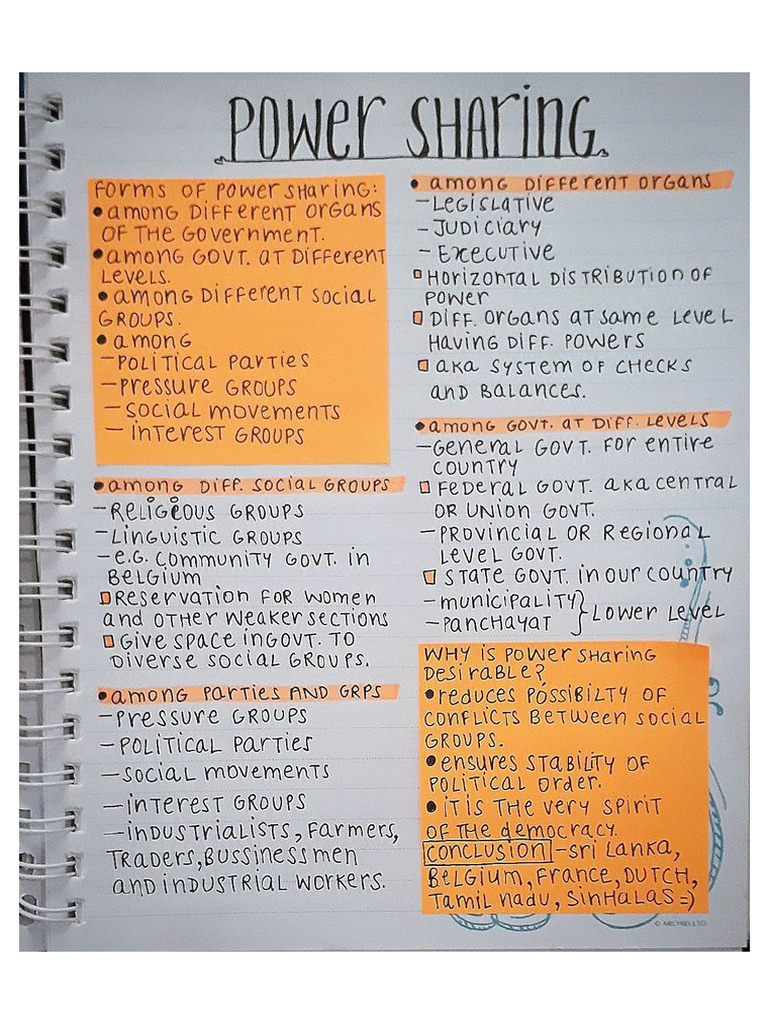 POWER SHARING
FORMS OF POWER SHARING:
• AMONG DIFFERENT ORGANS
OF THE GOVERNMENT.
• AMONG GOVT. AT DIFFERENT
LEVELS.
• AMONG DIFFERENT SOCIAL
GROUPS.
• AMONG
- POLITICAL PARTIES
- PRESSURE GROUPS
- SOCIAL MOVEMENTS
- INTEREST GROUPS
• AMONG DIFF. SOCIAL GROUPS
- RELIGIOUS GROUPS
- LINGUISTIC GROUPS
- E.G. COMMUNITY GOVT. IN
BELGIUM
RESERVATION FOR WOMEN
AND OTHER WEAKER SECTIONS
GIVE SPACE IN GOVT. TO
DIVERSE SOCIAL GROUPS.
• AMONG PARTIES AND GRPS
- PRESSURE GROUPS
- POLITICAL PARTIES
- SOCIAL MOVEMENTS
- INTEREST GROUPS
- INDUSTRIALISTS, FARMERS,
TRADERS, BUSSINESSMEN
AND INDUSTRIAL WORKERS.
• AMONG DIFFERENT ORGANS
- LEGISLATIVE
- JUDICIARY
- EXECUTIVE
HORIZONTAL DISTRIBUTION OF
POWER
DIFF. ORGANS AT SAME LEVEL
HAVING DIFF. POWERS
AKA SYSTEM OF CHECKS
AND BALANCES.
• AMONG GOVT. AT DIFF. LEVELS
- GENERAL GOVT. FOR ENTIRE
COUNTRY
FEDERAL GOVT. AKA CENTRAL
OR UNION GOVT.
- PROVINCIAL OR REGIONAL
LEVEL GOVT.
STATE GOVT. IN OUR COUNTRY
- MUNICIPALITY
- PANCHAYAT } LOWER LEVEL
WHY IS POWER SHARING
DESIRABLE?
• REDUCES POSSIBILTY OF
CONFLICTS BETWEEN SOCIAL
GROUPS.
• ENSURES STABILITY OF
POLITICAL ORDER.
• IT IS THE VERY SPIRIT
OF THE DEMOCRACY.
CONCLUSION - SRI LANKA,
BELGIUM, FRANCE, DUTCH,
TAMIL NADU, SINHALAS =)
© ARCHIES LTD.